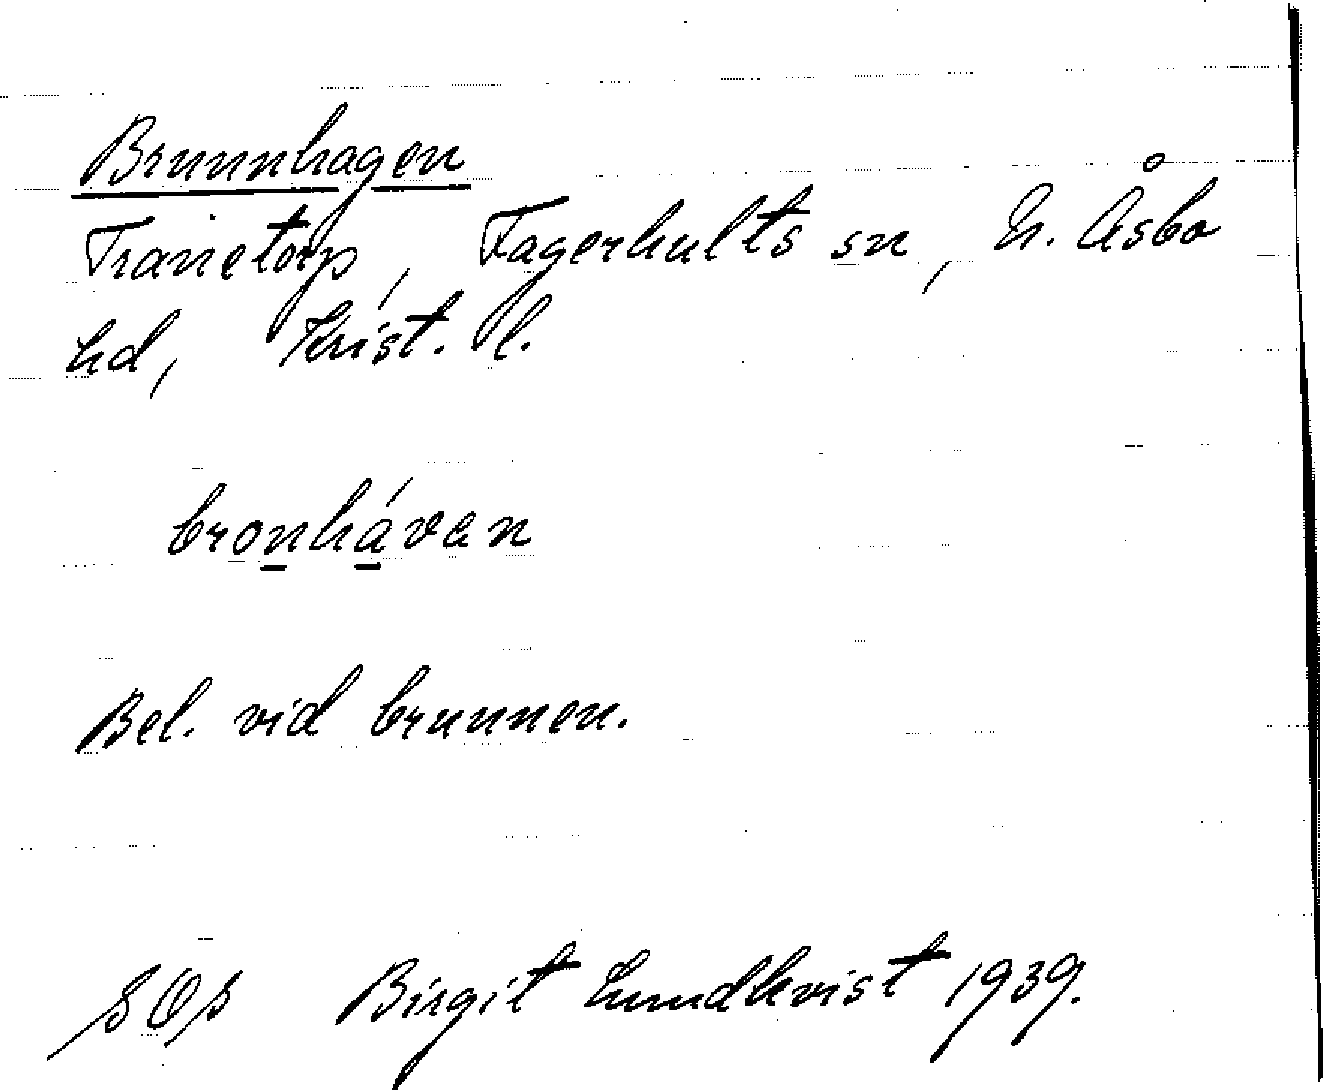 Brunnhagen
Tranetorp, Fagerhults sn, N. Åsbo
hd, Krist. l.
bronháven
Bel. vid brunnen.
SOS Birgit Lundkvist 1939.